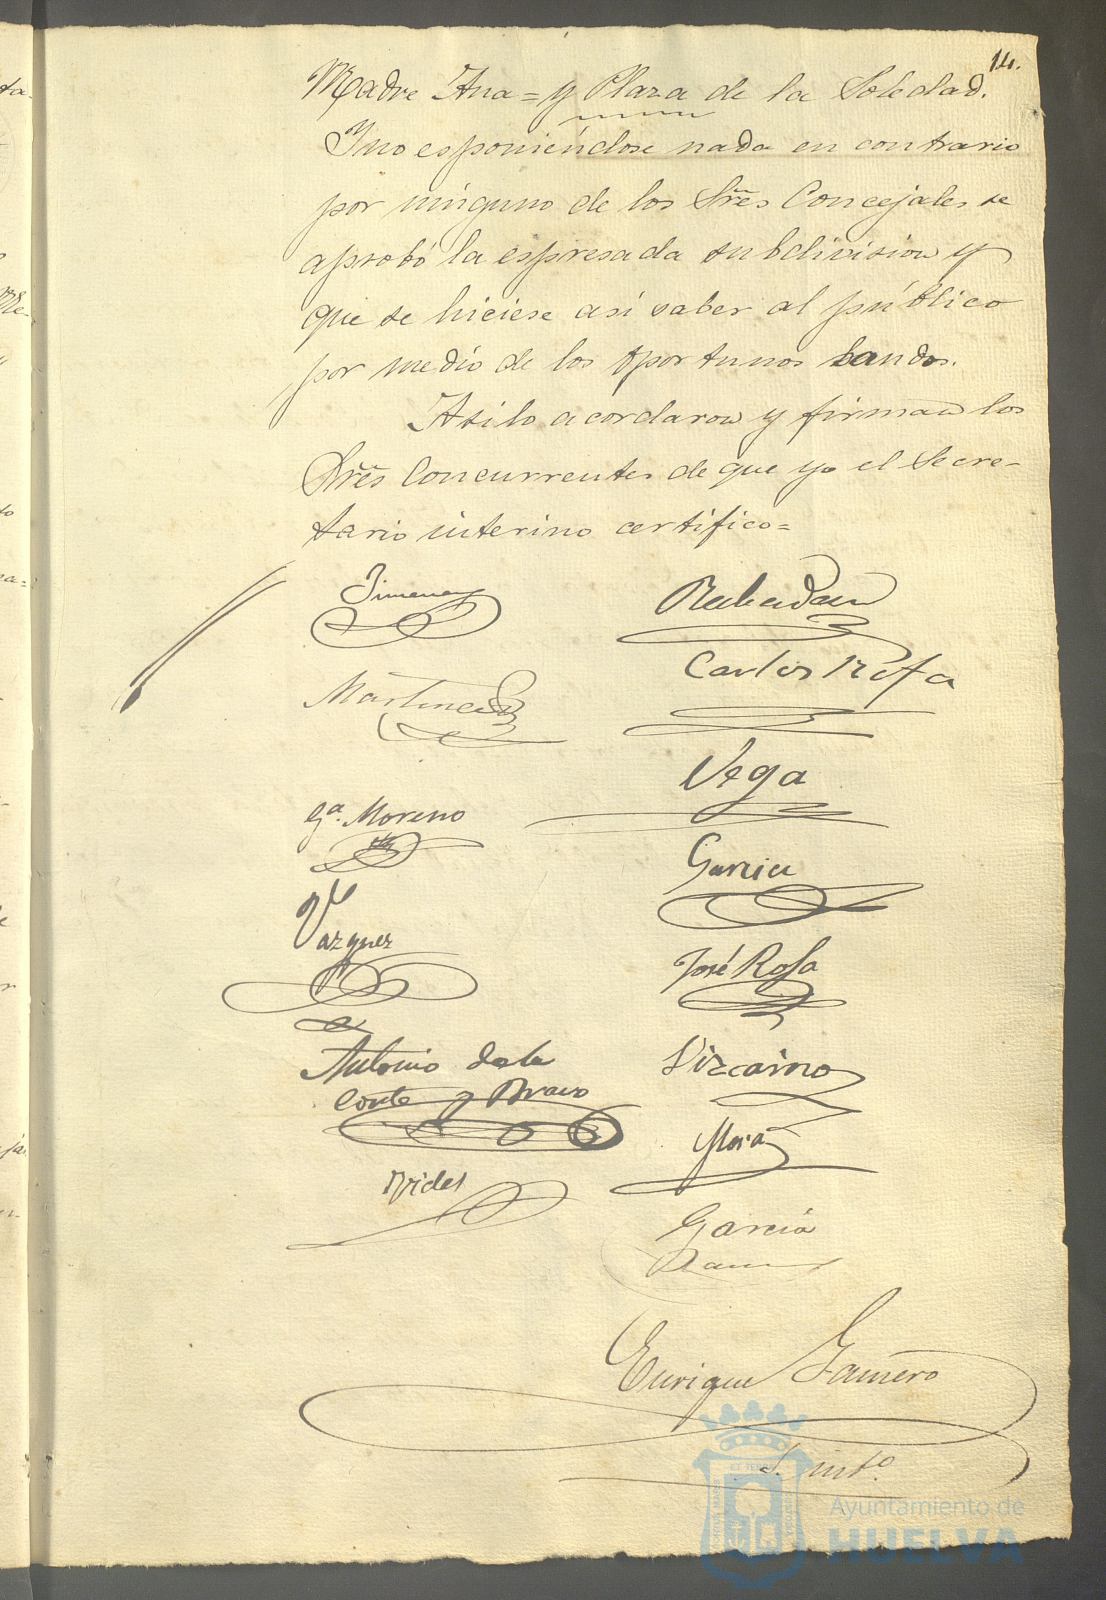 14.
Madre Ana = y Plaza de la Soledad.
Y no esponiéndose nada en contrario
por ninguno de los Sres Concejales se
aprobó la espresada subdivision y
que se hiciese así saber al público
por medio de los oportunos bandos.
Asi lo acordaron y firman los
Sres Concurrentes de que yo el Secre-
tario interino certifico=
Jimenez
Rabadan
Carlos Rofa
Martinez
Vega
Ga. Moreno
Garcia
Vazquez
José Rofa
Antonio de la
Corte y Bravo
Vizcaino
Mora
Vides
García
Ramos
Enrique Gamero
S. into.
Ayuntamiento de
HUELVA